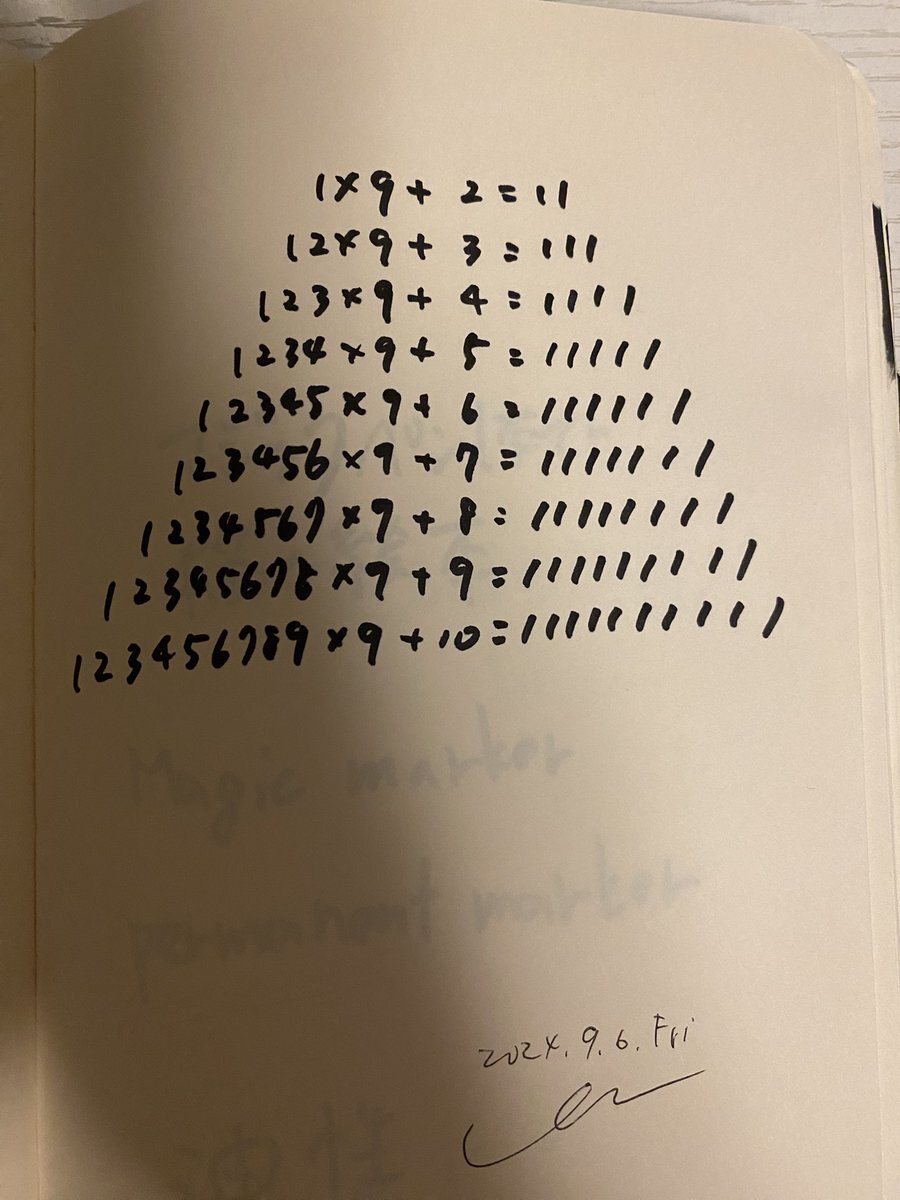 1×9+2=11
12×9+3=111
123×9+4=1111
1234×9+5=11111
12345×9+6=111111
123456×9+7=1111111
1234567×9+8=11111111
12345678×9+9=111111111
123456789×9+10=1111111111
Magic marker
permanent marker
2024.9.6.Fri